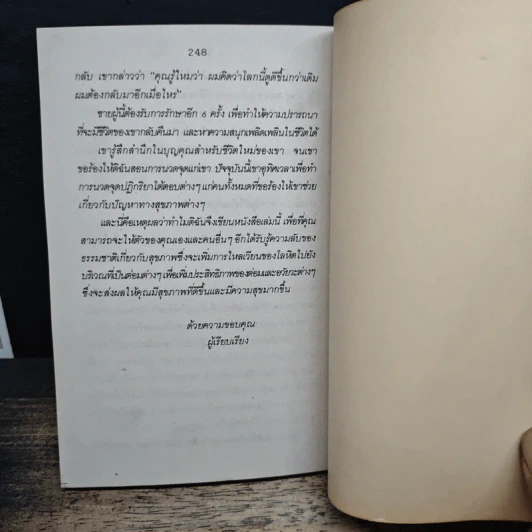 248
กลับ เขากล่าวว่า "คุณรู้ไหมว่า ผมคิดว่าโลกนี้ดูดีขึ้นกว่าเดิม
ผมต้องกลับมาอีกเมื่อไหร่"
ชายผู้นี้ต้องรับการรักษาอีก 6 ครั้ง เพื่อทำให้ความปรารถนา
ที่จะมีชีวิตของเขากลับคืนมา และหาความสนุกเพลิดเพลินในชีวิตได้
เขารู้สึกสำนึกในบุญคุณสำหรับชีวิตใหม่ของเขา จนเขา
ขอร้องให้ดิฉันสอนการนวดจุดแก่เขา ปัจจุบันนี้เขาอุทิศเวลาเพื่อทำ
การนวดจุดปฏิกิริยาโต้ตอบต่างๆ แก่คนทั้งหมดที่ขอร้องให้เขาช่วย
เกี่ยวกับปัญหาทางสุขภาพต่างๆ
และนี่คือเหตุผลว่าทำไมดิฉันจึงเขียนหนังสือเล่มนี้ เพื่อที่คุณ
สามารถจะให้ตัวของคุณเองและคนอื่นๆ อีกได้รับรู้ความลับของ
ธรรมชาติเกี่ยวกับสุขภาพซึ่งจะเพิ่มการไหลเวียนของโลหิตไปยัง
บริเวณที่เป็นต่อมต่างๆ เพื่อเพิ่มประสิทธิภาพของต่อมและอวัยวะต่างๆ
ซึ่งจะส่งผลให้คุณมีสุขภาพที่ดีขึ้นและมีความสุขมากขึ้น
ด้วยความขอบคุณ
ผู้เรียบเรียง